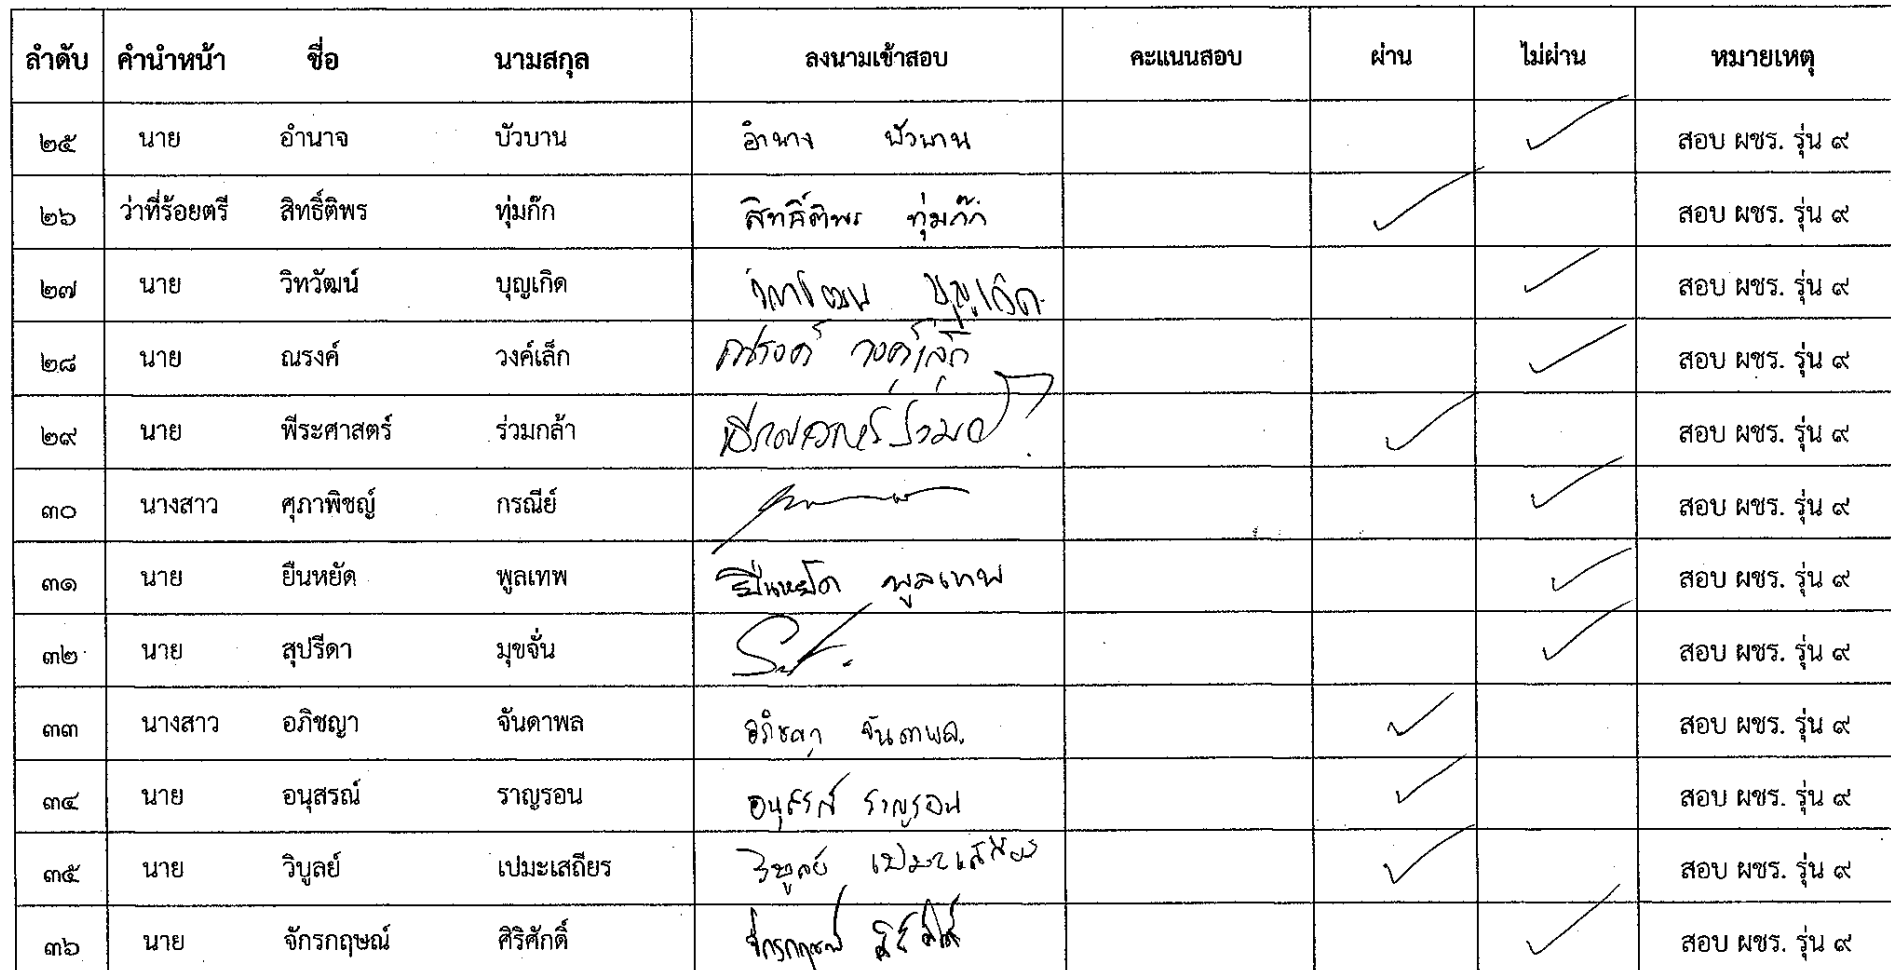 ลำดับ คำนำหน้า ชื่อ นามสกุล ลงนามเข้าสอบ คะแนนสอบ ผ่าน ไม่ผ่าน หมายเหตุ
๒๕ นาย อำนาจ บัวบาน อำนาจ บัวบาน สอบ ผชร. รุ่น ๙
๒๖ ว่าที่ร้อยตรี สิทธิ์ติพร ทุ่มก๊ก สิทธิ์ติพร ทุ่มก๊ก สอบ ผชร. รุ่น ๙
๒๗ นาย วิทวัฒน์ บุญเกิด วิทวัฒน์ บุญเกิด สอบ ผชร. รุ่น ๙
๒๘ นาย ณรงค์ วงค์เล็ก ณรงค์ วงค์เล็ก สอบ ผชร. รุ่น ๙
๒๙ นาย พีระศาสตร์ ร่วมกล้า สอบ ผชร. รุ่น ๙
๓๐ นางสาว ศุภาพิชญ์ กรณีย์ สอบ ผชร. รุ่น ๙
๓๑ นาย ยืนหยัด พูลเทพ ยืนหยัด พูลเทพ สอบ ผชร. รุ่น ๙
๓๒ นาย สุปรีดา มุขจั่น สอบ ผชร. รุ่น ๙
๓๓ นางสาว อภิชญา จันดาพล อภิชญา จันดาพล สอบ ผชร. รุ่น ๙
๓๔ นาย อนุสรณ์ ราญรอน อนุสรณ์ ราญรอน สอบ ผชร. รุ่น ๙
๓๕ นาย วิบูลย์ เปมะเสถียร วิบูลย์ เปมะเสถียร สอบ ผชร. รุ่น ๙
๓๖ นาย จักรกฤษณ์ ศิริศักดิ์ จักรกฤษณ์ ศิริศักดิ์ สอบ ผชร. รุ่น ๙